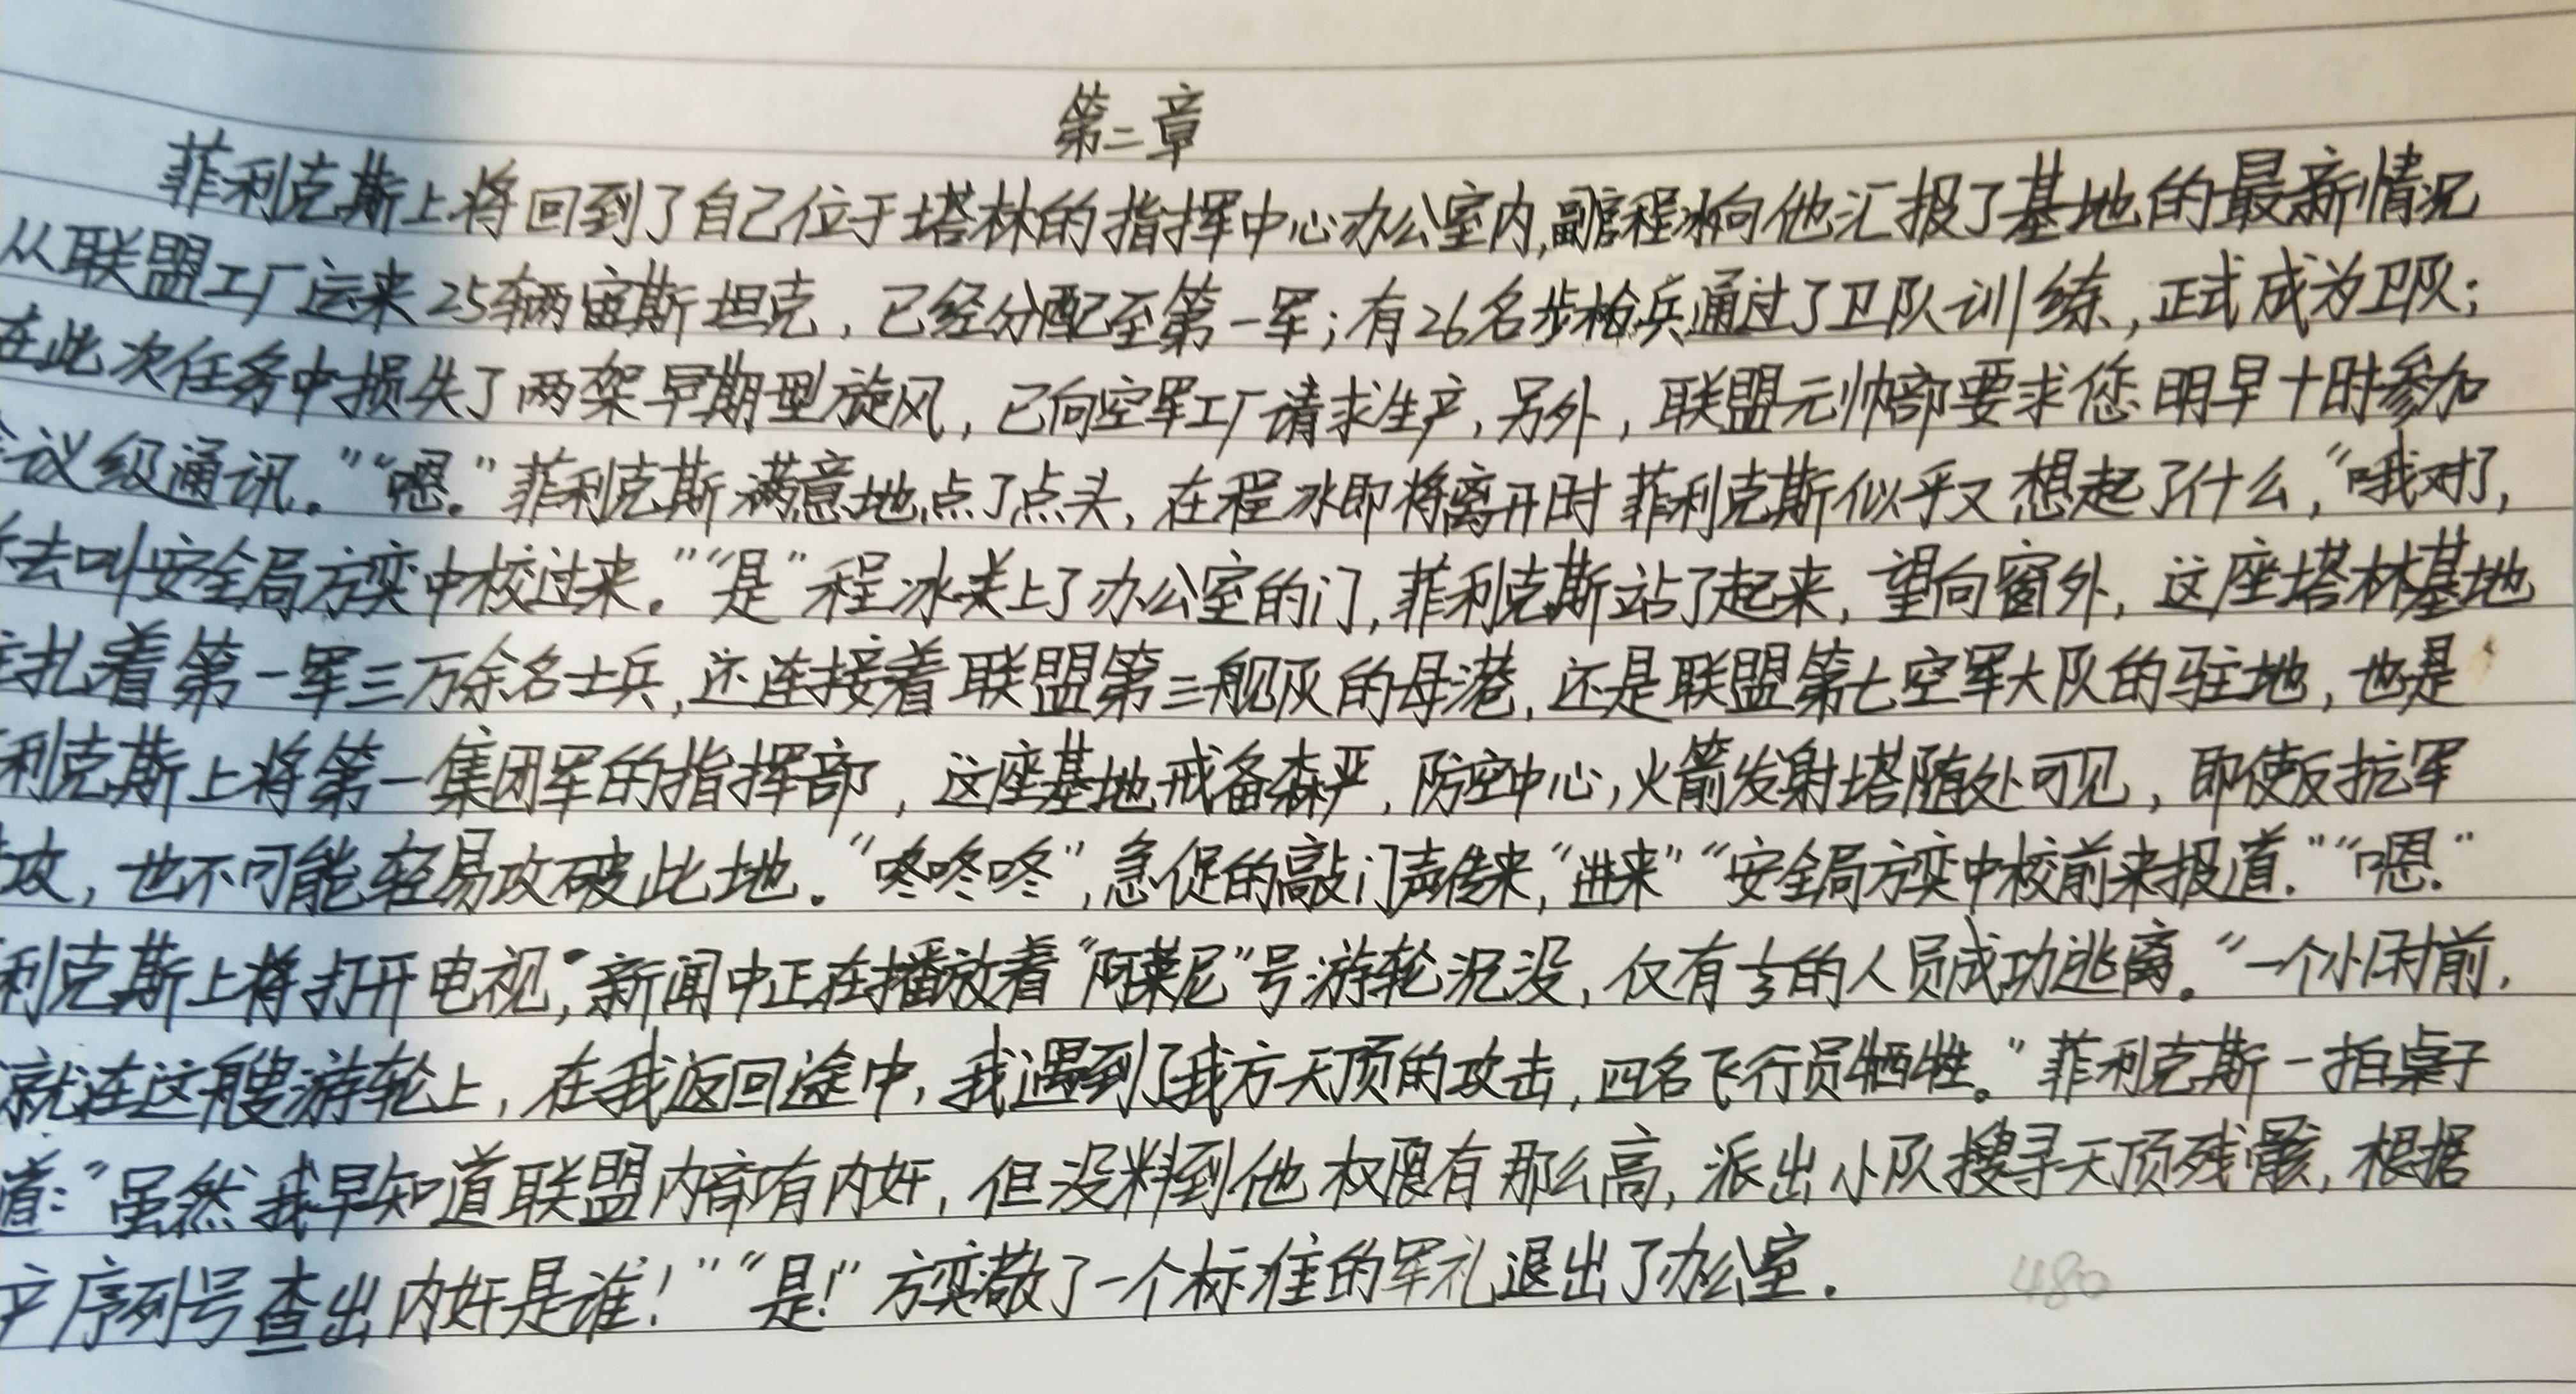 第二章
菲利克斯上将回到了自己位于塔林的指挥中心办公室内,副官程冰向他汇报了基地的最新情况
从联盟工厂运来25辆宙斯坦克，已经分配至第一军；有26名步枪兵通过了卫队训练，正式成为卫队；
在此次任务中损失了两架早期型旋风，已向空军工厂请求生产，另外，联盟元帅部要求您明早十时参加
会议级通讯。”“嗯。”菲利克斯满意地点了点头，在程冰即将离开时菲利克斯似乎又想起了什么，“哦对了，
去叫安全局方奕中校过来。”“是”程冰关上了办公室的门，菲利克斯站了起来，望向窗外，这座塔林基地
扎着第一军三万余名士兵，还连接着联盟第三舰队的母港，还是联盟第七空军大队的驻地，也是
利克斯上将第一集团军的指挥部，这座基地戒备森严，防空中心，火箭发射塔随处可见，即使反抗军
攻，也不可能轻易攻破此地。“咚咚咚”，急促的敲门声传来，“进来”“安全局方奕中校前来报道.”“嗯.”
利克斯上将打开电视，新闻中正在播放着“阿莱尼”号游轮沉没，仅有⅓的人员成功逃离。“一个小时前，
就在这艘游轮上，在我返回途中，我遇到了我方天顶的攻击，四名飞行员牺牲。”菲利克斯一拍桌子
道：“虽然我早知道联盟内部有内奸，但没料到他权限有那么高，派出小队搜寻天顶残骸，根据
产序列号查出内奸是谁！”“是!”方奕敬了一个标准的军礼退出了办公室.
480